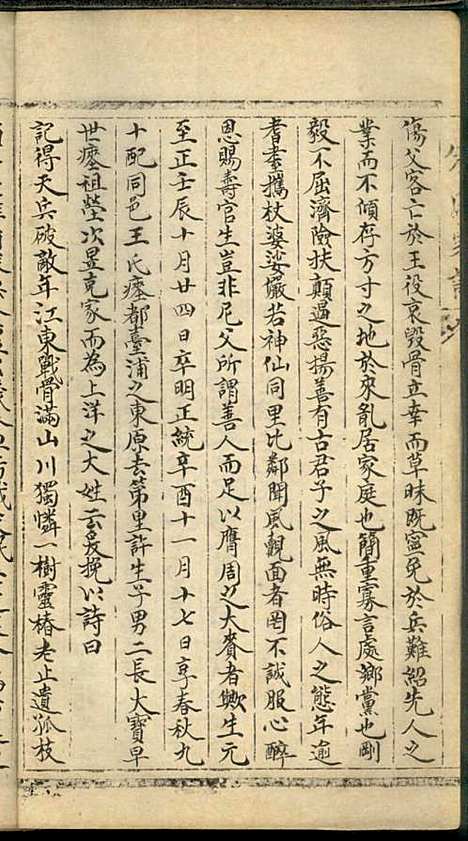 傷父客亡於王役哀毀骨立幸而草昧既寧免於兵難紹先人之
業而不傾存方寸之地於來亂居家庭也簡重寡言處鄉黨也剛
毅不屈濟險扶顛遏惡揚善有古君子之風無時俗人之態年逾
耆耋攜杖婆娑儼若神仙同里比鄰聞風覩面者罔不誠服心醉
恩賜壽官生豈非尼父所謂善人而足以膺周之大賚者歟生元
至正壬辰十月廿四日卒明正統辛酉十一月十七日享春秋九
十配同邑王氏瘞都臺浦之東原去第里許生子男二長大寶早
世瘞祖塋次昱克家而為上洋之大姓云爰挽以詩曰
記得天兵破敵年江東戰骨滿山川獨憐一樹靈椿老止遺孤枝